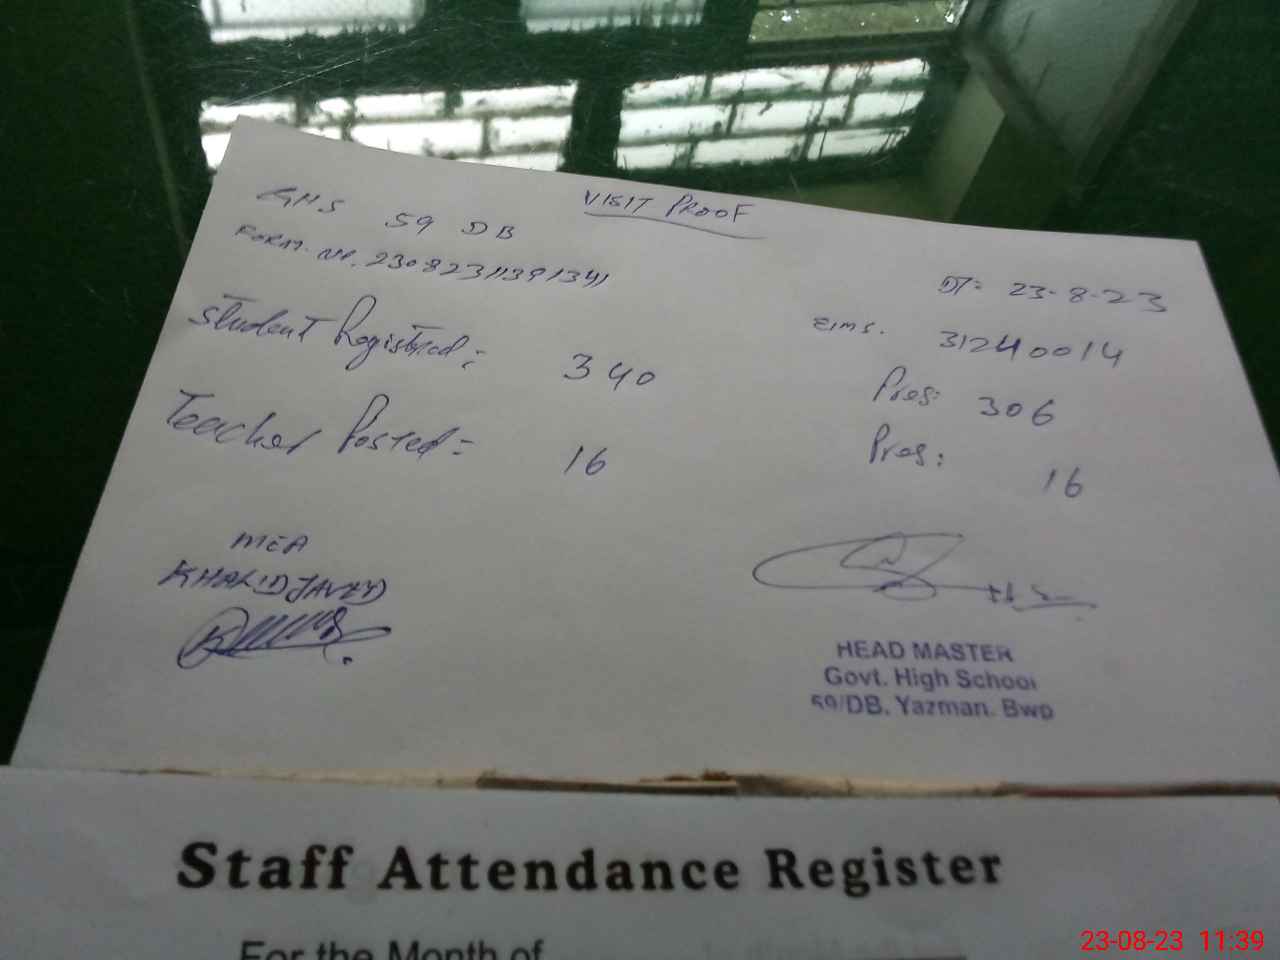 VISIT PROOF
GHS 59 DB
FORM. No. 23082311391341
DT: 23-8-23
EIMS. 31240014
Student Registred: 340
Pres: 306
Teacher Posted= 16
Pres: 16
MEA
KHALID JAVED
HEAD MASTER
Govt. High School
59/DB. Yazman. Bwp
Staff Attendance Register
For the Month of
23-08-23 11:39